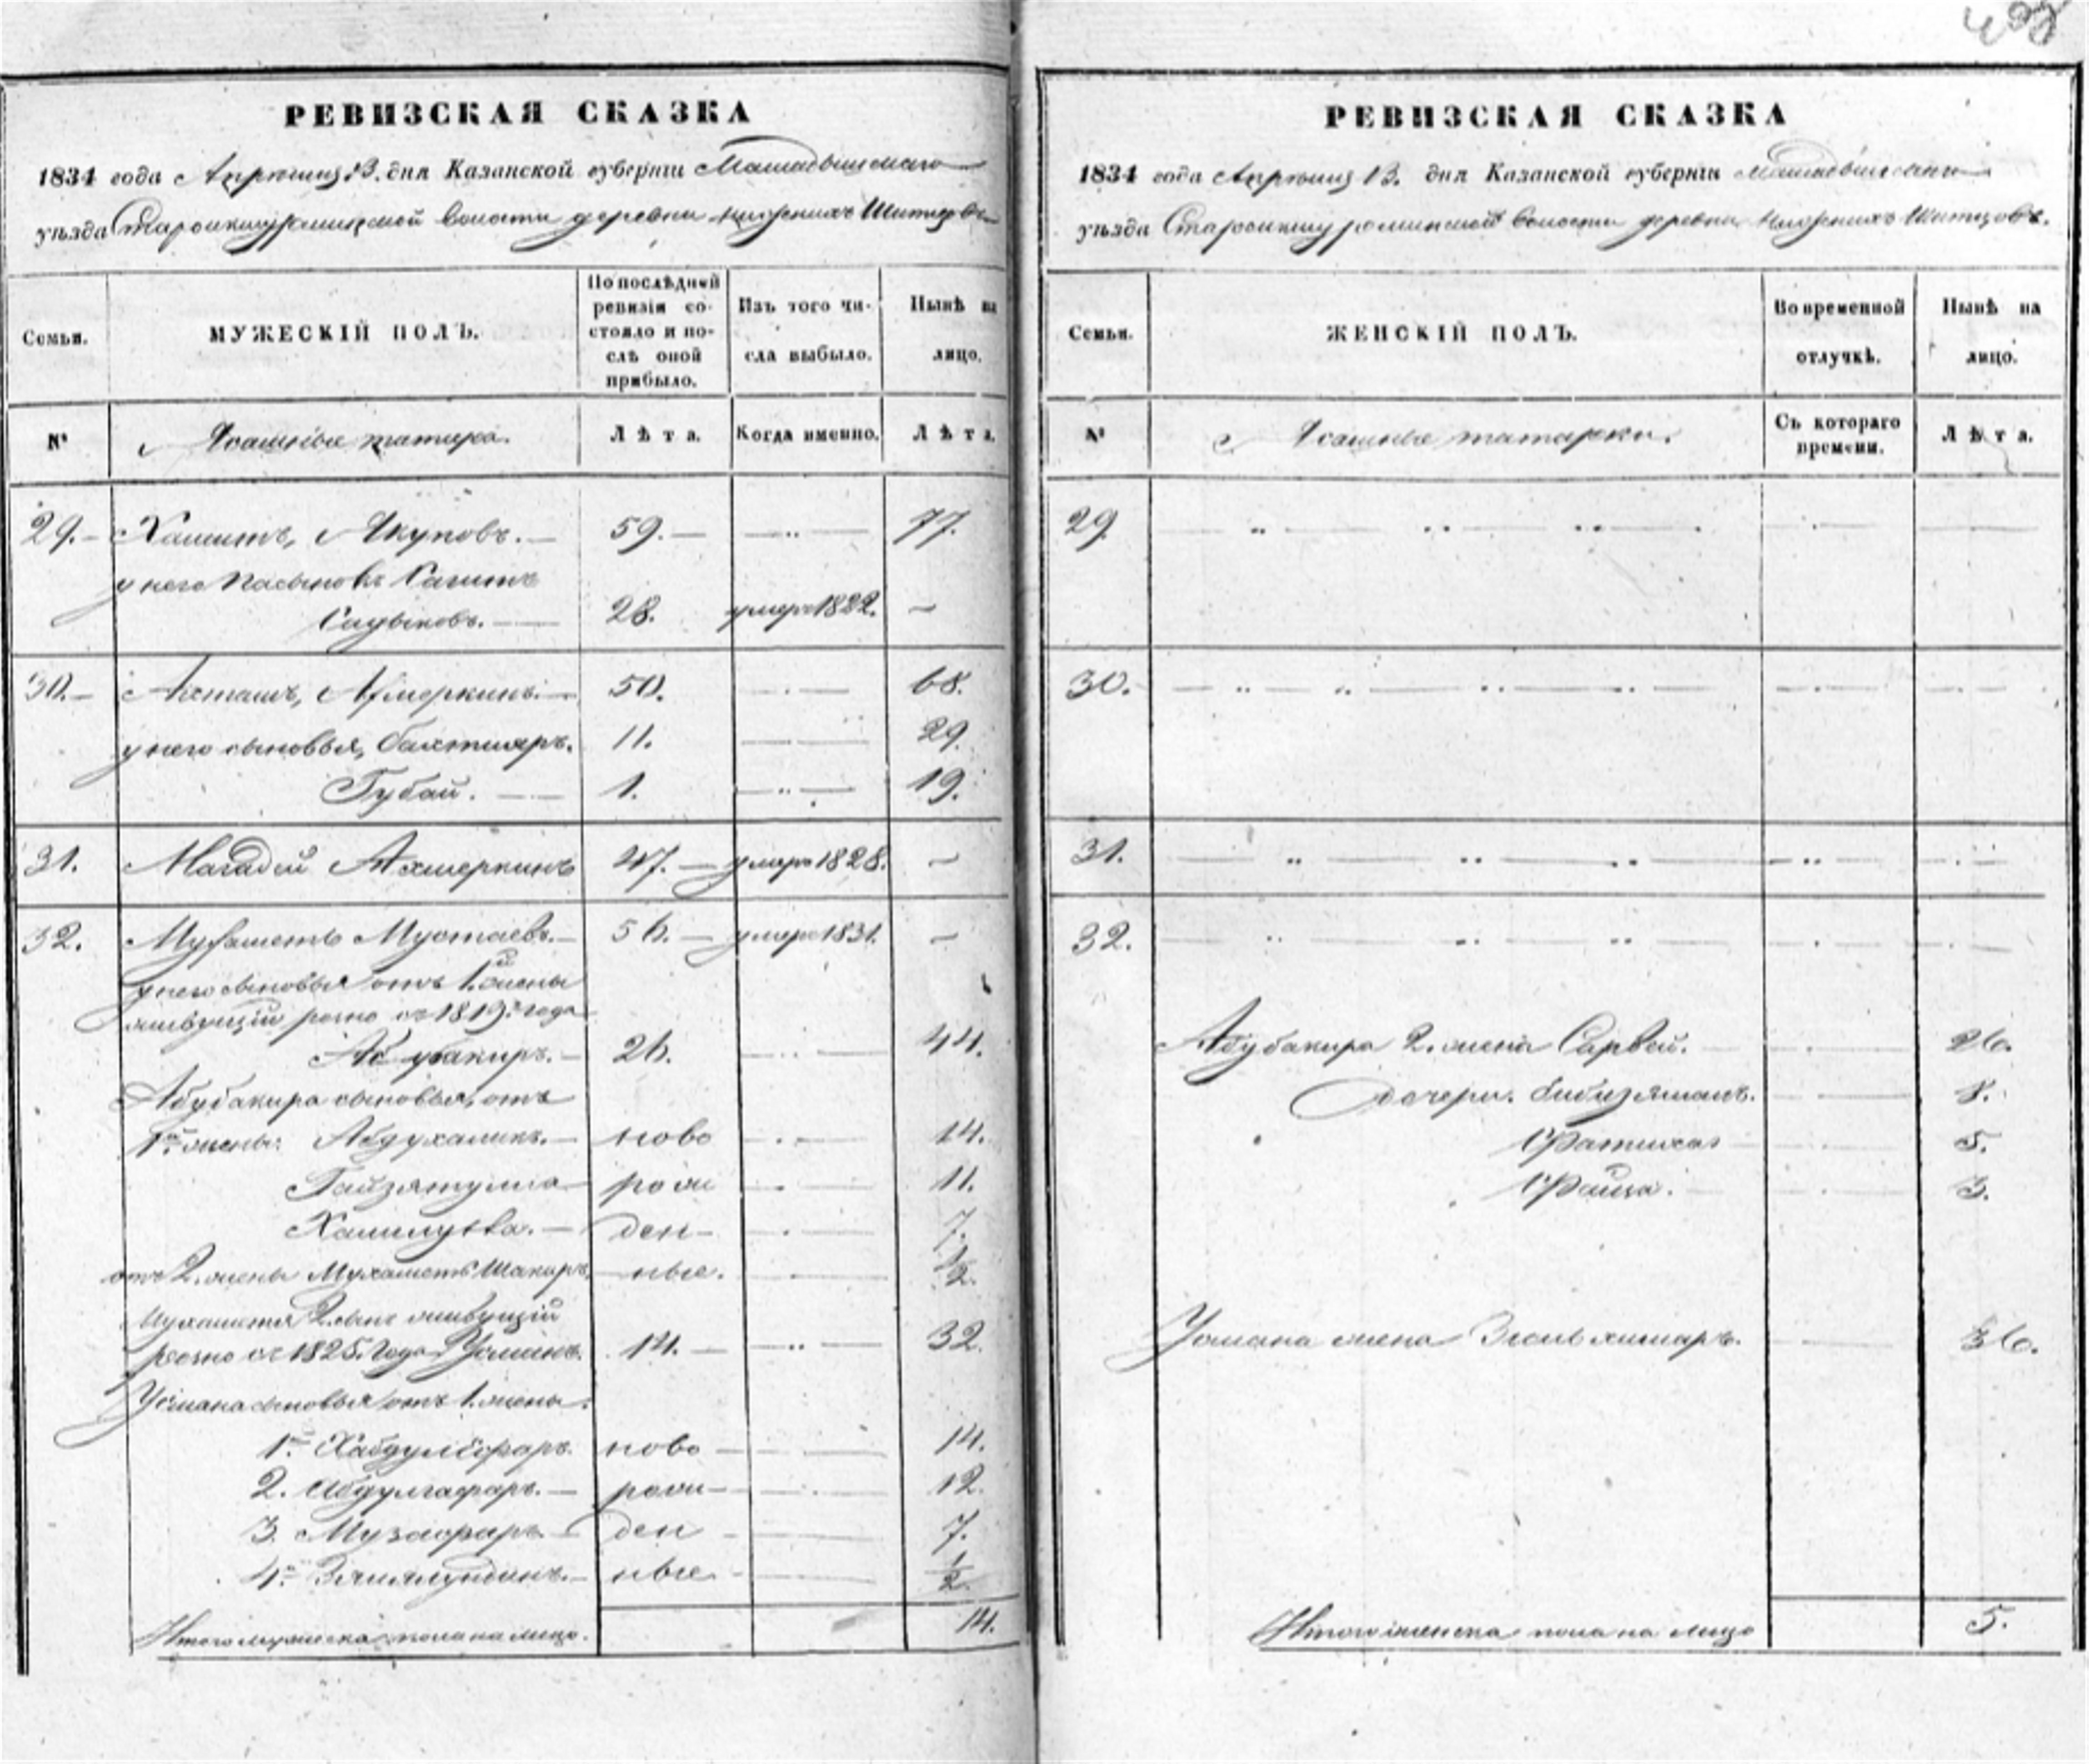 РЕВИЗСКАЯ СКАЗКА
1834 года Апрѣля 13. дня Казанской губерніи Мамадышскаго
уѣзда волости деревни
Семьи.
МУЖЕСКІЙ ПОЛЪ.
По послѣдней ревизіи состояло и послѣ оной прибыло.
Изъ того числа выбыло.
Нынѣ на лицо.
№
Ясашные татара.
Лѣта.
Когда именно.
Лѣта.
29. Хамитъ, Якуповъ. 59. 77.
у него пасынокъ
Садыковъ. 28. умеръ 1822.
30. 50. 68.
у него сыновья, Бахтияръ. 11. 29.
Губай. 1. 19.
31. Магадей Ахмеркинъ 47. умеръ 1828.
32. Мухаметъ Мустаевъ. 56. умеръ 1831.
у него сыновья отъ 1й жены
живущій розно съ 1819. года
Абубакиръ. 26. 44.
Абубакира сыновья, отъ
1й жены: Абдухаликъ. ново 14.
Гайзятулла рож 11.
ден 7.
отъ 2. жены Мухаметъ Шакиръ, ные. 1/2.
Мухаметя 2. сынъ живущій
розно съ 1825. года Усманъ. 14. 32.
Усмана сыновья отъ 1. жены.
1. ново 14.
2. Абдулгафаръ. рож 12.
3. Музафаръ. ден 7.
4. ные 1/2
Итого мужеска пола на лицо. 14.
РЕВИЗСКАЯ СКАЗКА
1834 года Апрѣля 13. дня Казанской губерніи Мамадышскаго
уѣзда волости деревни
Семьи.
ЖЕНСКІЙ ПОЛЪ.
Во временной отлучкѣ.
Нынѣ на лицо.
№
Ясашные татарки.
Съ котораго времени.
Лѣта.
29.
30.
31.
32.
Абубакира 2. жена Сарвей. 26.
дочери. Бибизямалъ. 8.
Фатиха 5.
3.
Усмана жена 36.
Итого женска пола на лицо 5.